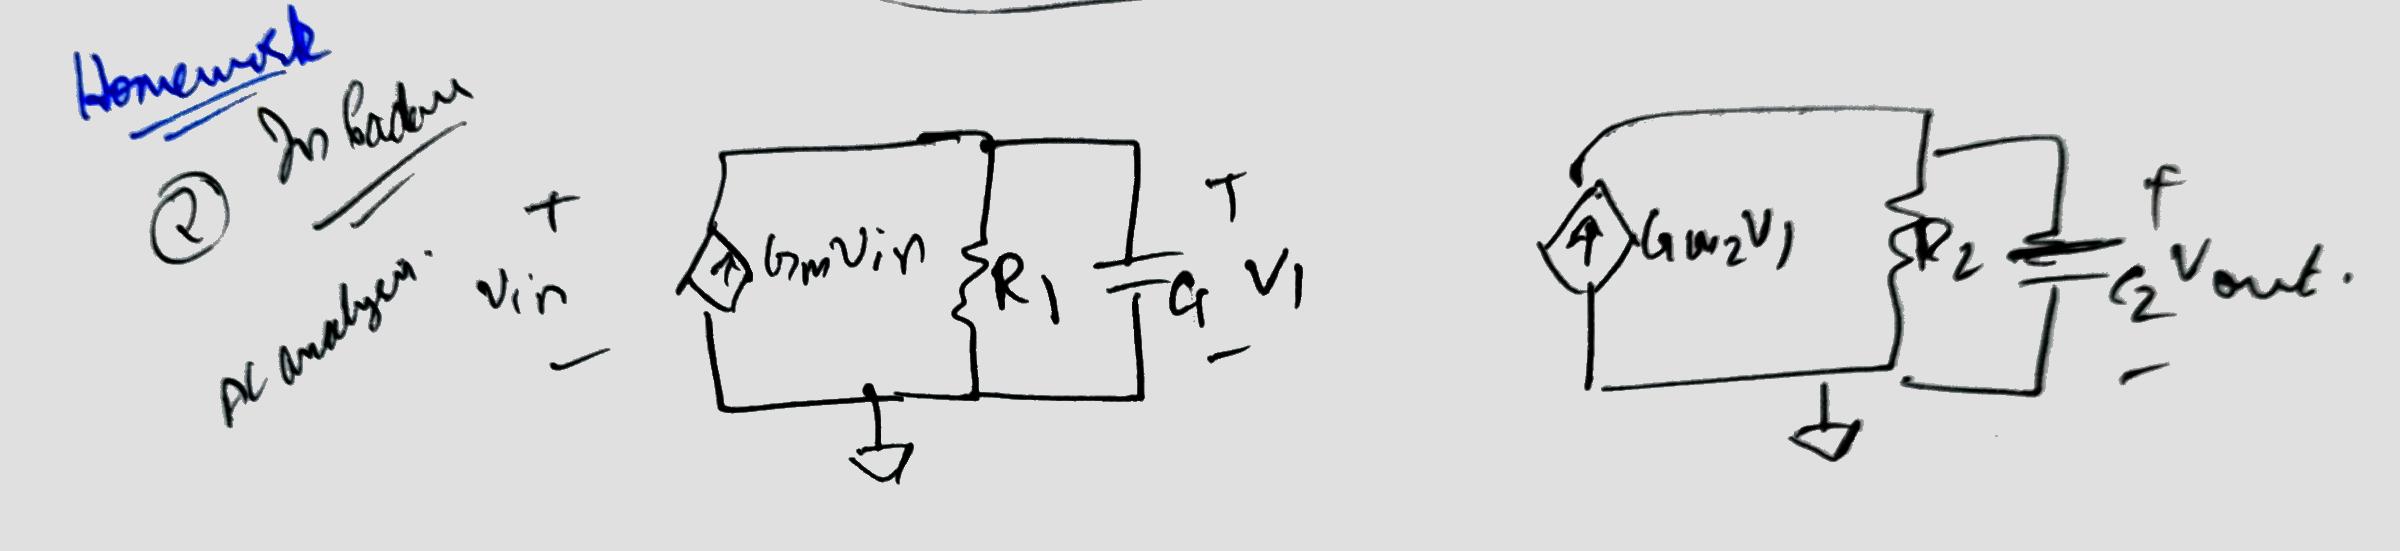 Homework
② In Cadence
AC analysis.
+
Vin
-
GmVin
R1
C1
+
V1
-
Gm2V1
R2
C2
+
Vout.
-